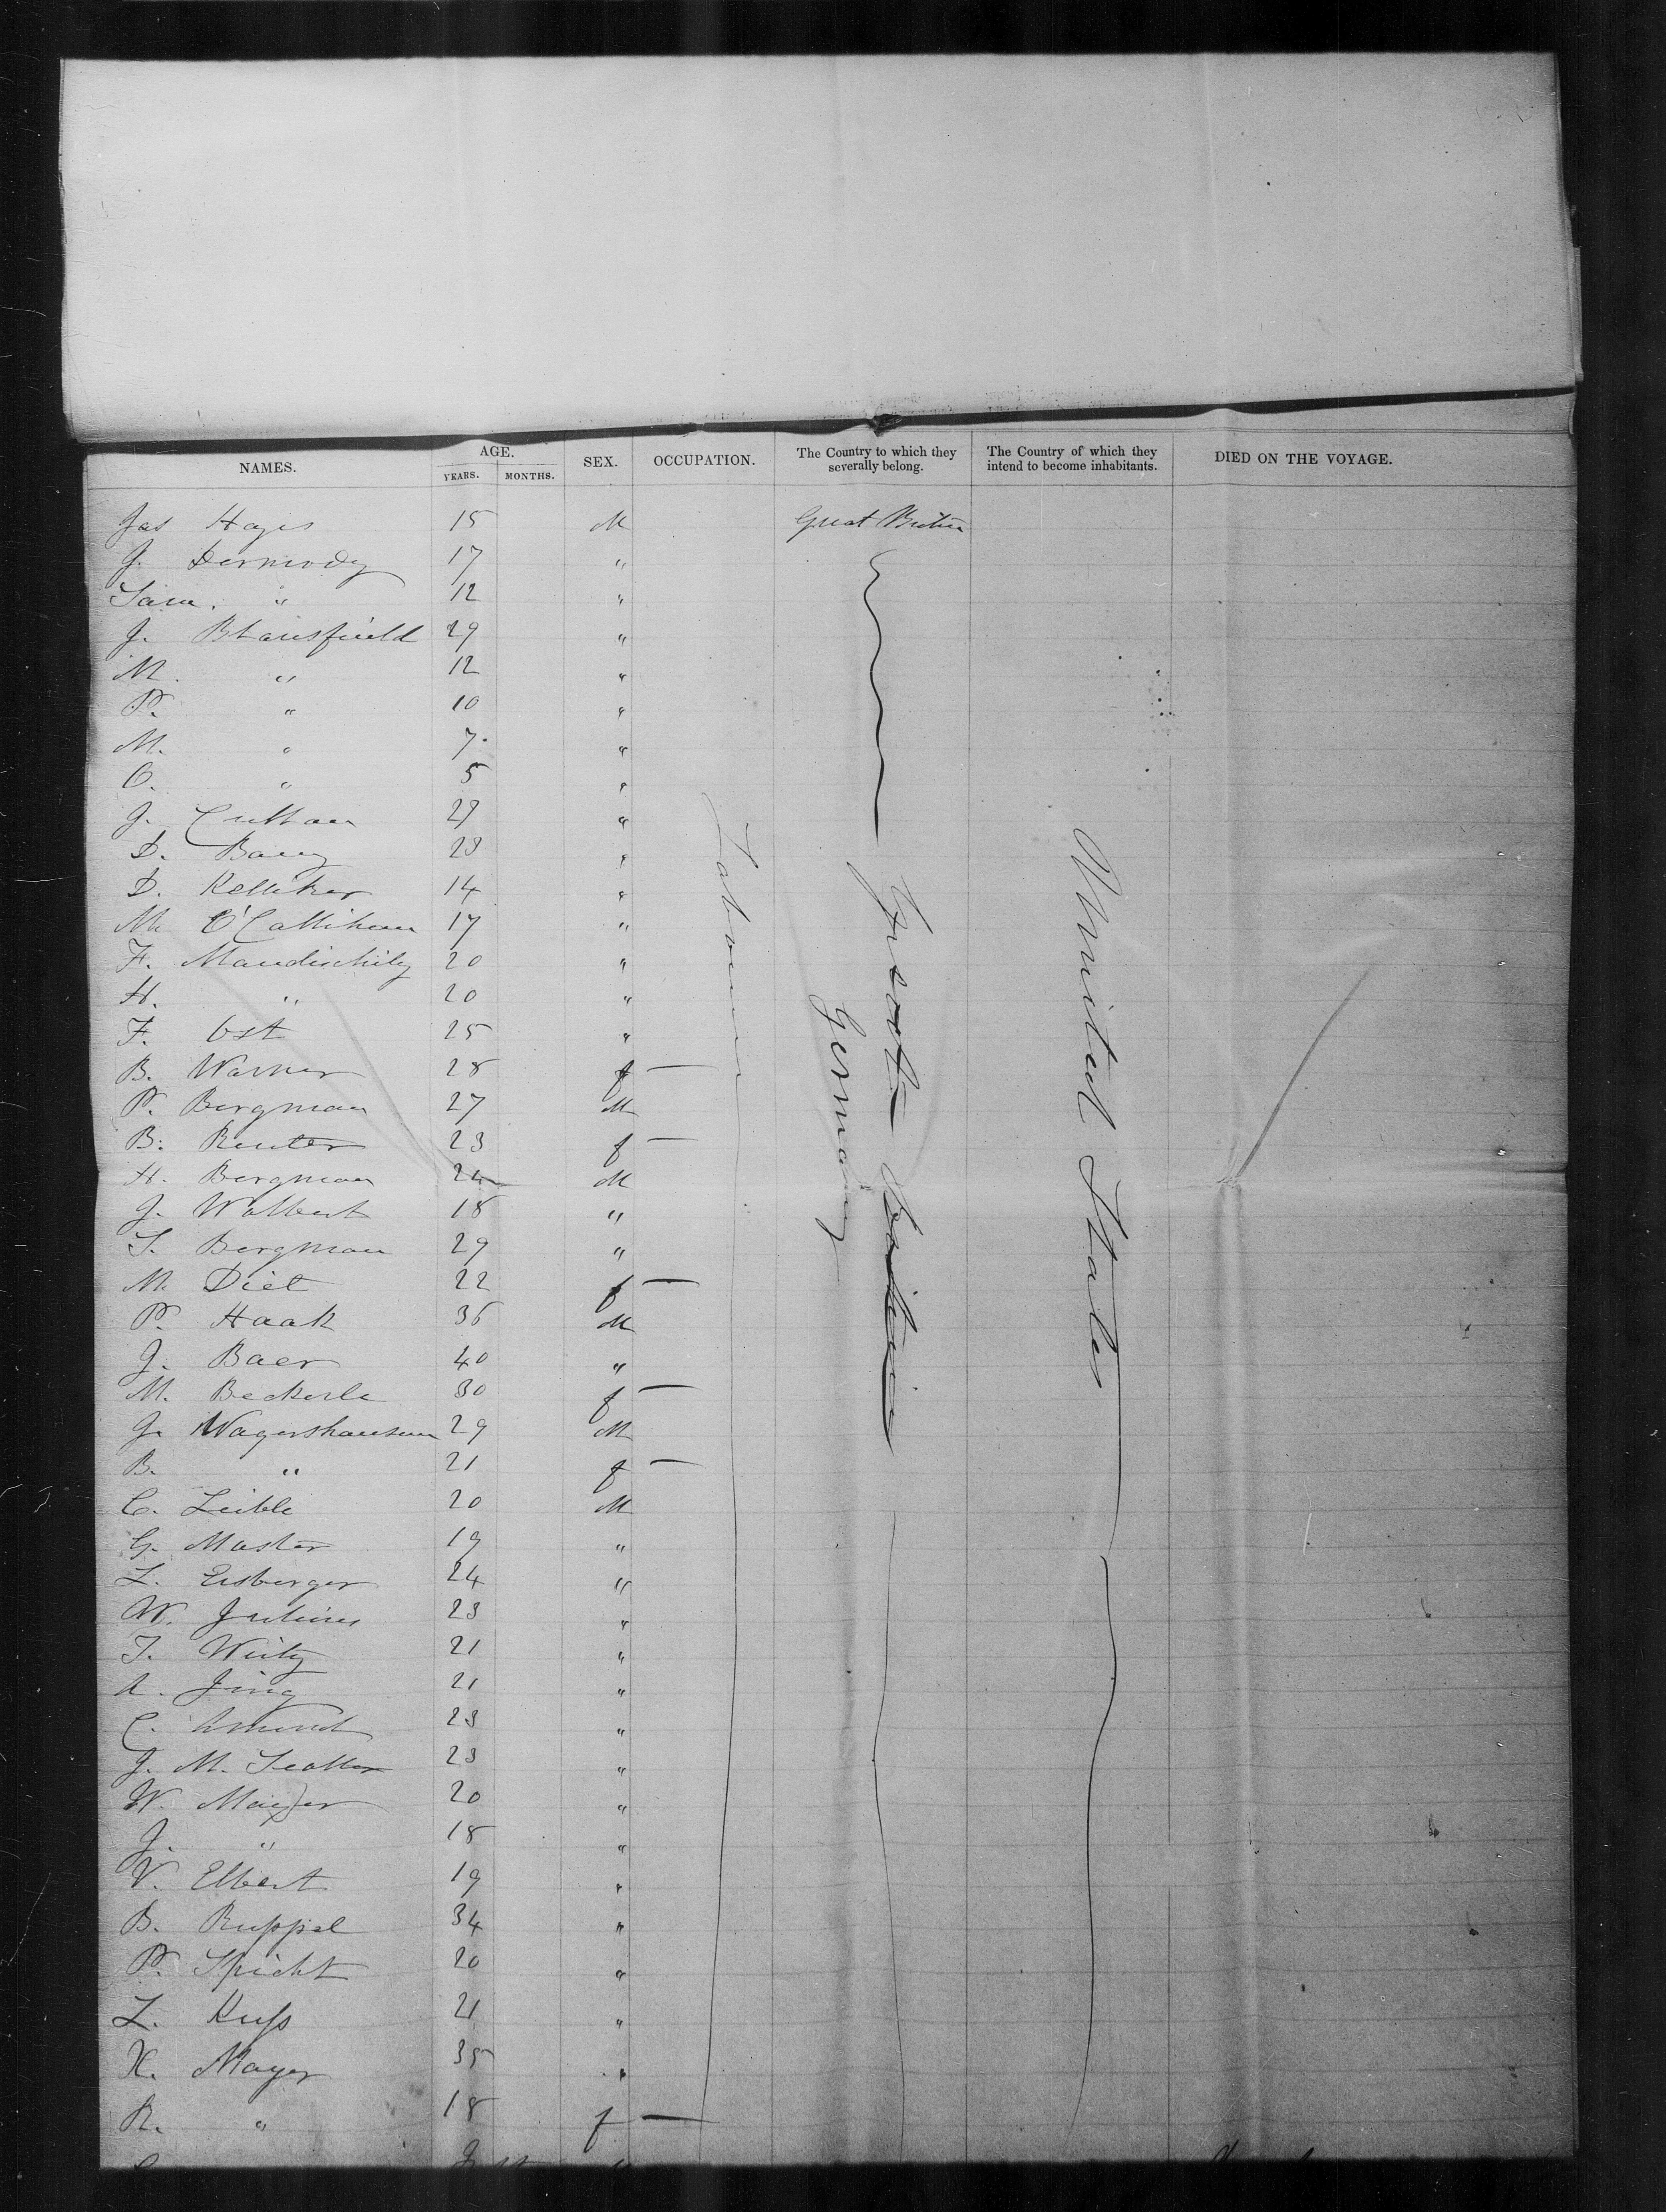 NAMES. AGE. YEARS. MONTHS. SEX. OCCUPATION. The Country to which they severally belong. The Country of which they intend to become inhabitants. DIED ON THE VOYAGE.
Jas Hayes 15 M Great Britain
J. Dermody 17 "
Sam. " 12 "
J. Stansfield 29 "
M. " 12 "
P. " 10 "
M. " 7 "
C. " 5 "
J. 29 "
D. Barry 23 "
D. Kelliker 14 "
M O'Callihan 17 "
F. 20 "
H. " 20 "
F. Ost 25 "
B. Warner 28 f —
P. Bergman 27 M
B. Reuter 23 f —
H. Bergman 24 M
J. Wolbert 18 "
S. Bergman 29 "
M. Diet 22 f —
P. Haak 36 M
J. Baer 40 "
M. Beckerle 30 f —
J. Wagershausen 29 M
B. " 21 f —
C. Leible 20 M
G. Master 19 "
L. Eisberger 24 "
W. Julius 23 "
T. Weitz 21 "
A. Jung 21 "
C. Amend 23 "
J. M. 23 "
W. Mayer 20 "
J. " 18 "
V. Elbert 19 "
B. Ruppel 34 "
P. Spicht 20 "
L. Kuss 21 "
X. Mayer 35 "
R. " 18 f —
Labourer
Great Britain
Germany
United States